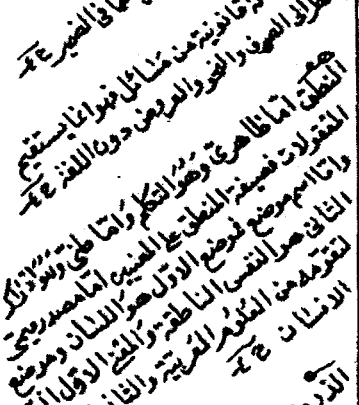 ما فى الضمير ع ح
قانونية من مسائل فهو انما يستقيم
الى الصرف والنحو والعروض دون اللغة ع ح
المنطق اما ظاهرى وهو التكلم واما باطنى وهو ادراك
المعقولات فصيغة المنطق على المعنيين اما مصدر ميمى
واما اسم موضع فموضع الاول هو اللسان وموضع
الثانى هو النفس الناطقة والمعنى الاول
لتقومه من العلوم العربية والثانى
الانسان ع ح